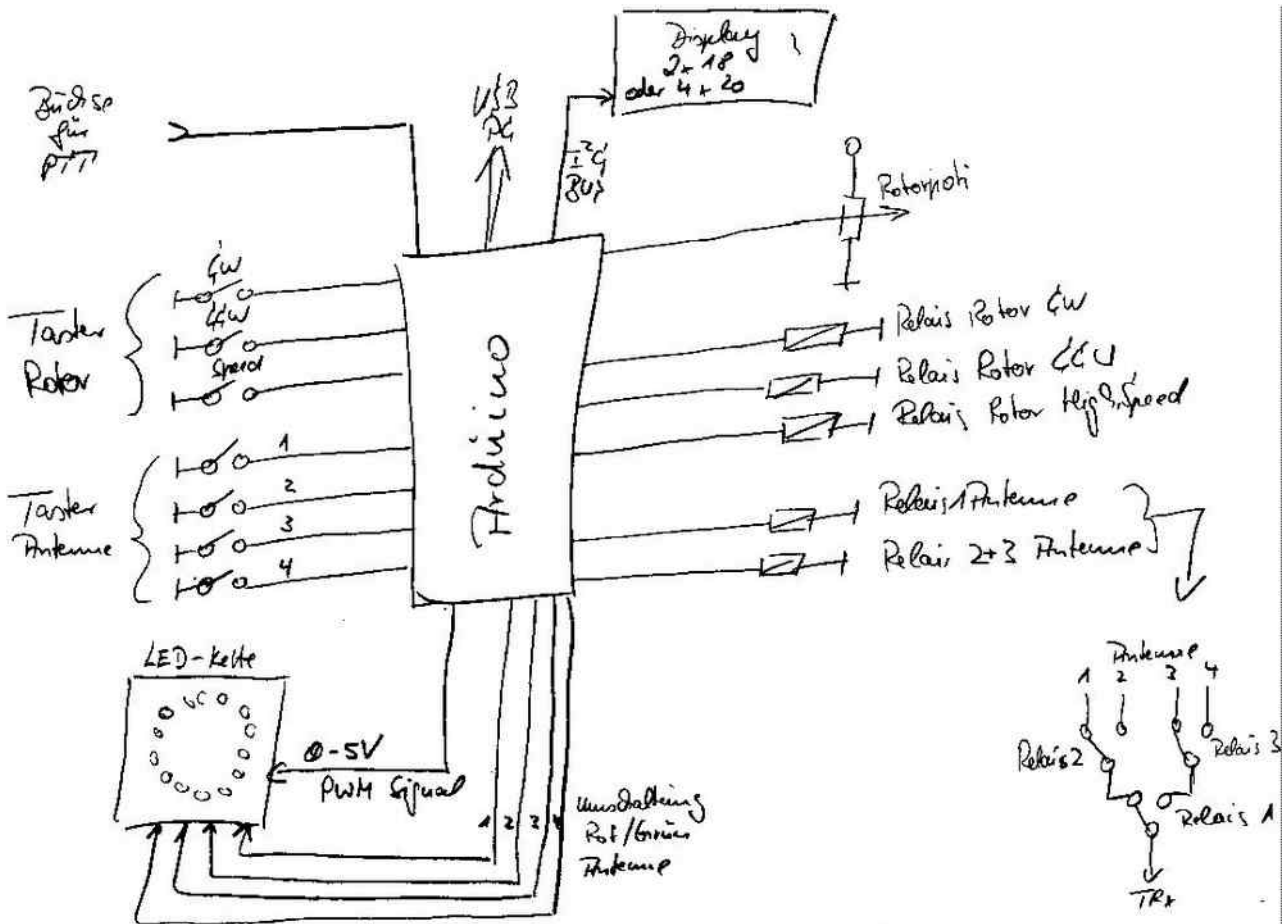 Display
2 x 18
oder 4 x 20
Büchse
für
PTT
USB
PC
I²C
BUS
Rotorpoti
Taster
Rotor
CW
CCW
Speed
Arduino
Relais Rotor CW
Relais Rotor CCW
Relais Rotor High Speed
Taster
Antenne
1
2
3
4
Relais 1 Antenne
Relais 2+3 Antenne
LED-Kette
0-5V
PWM Signal
1 2 3 4
Umschaltung
Rot/Grün
Antenne
Antenne
1 2 3 4
Relais 2
Relais 3
Relais 1
TRX